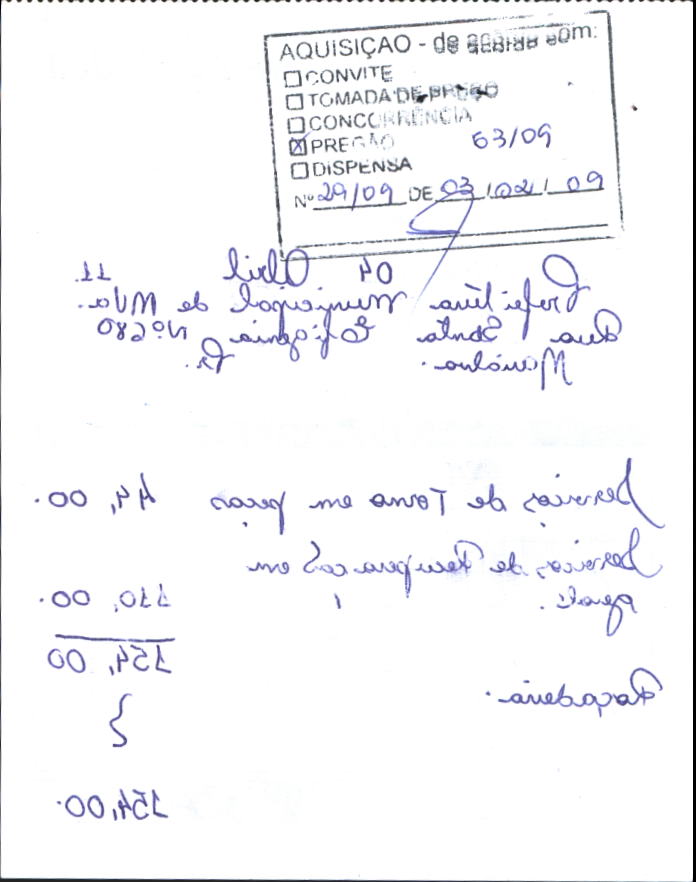 AQUISIÇAO - de acordo com:
☐ CONVITE
☐ TOMADA DE PREÇO
☐ CONCORRÊNCIA
☒ PREGÃO 63/09
☐ DISPENSA
Nº 29/09 DE 03/02/09
04 Abril 11
Prefeitura Municipal de MVa.
Rua Santa Efigenia Nº 680
Marialva. Pr.
Servicos de Torno em peças 44,00.
Servicos de Recuperacaõ em
geral. 110,00.
154,00
Roçaderia.
154,00.